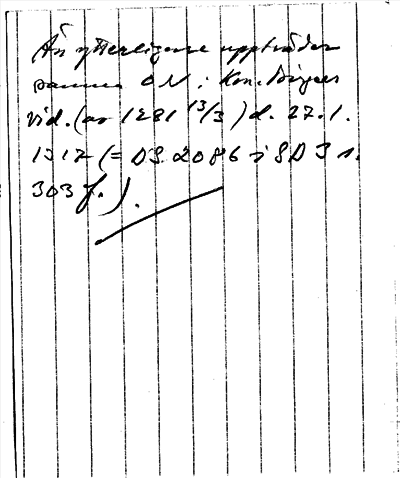 Än ytterligare uppträder
samme ON i kon. Birgers
vid. (av 1281 13/3) d. 27.1.
1312 (= DS 2086 i SD 3 s.
303 f.).